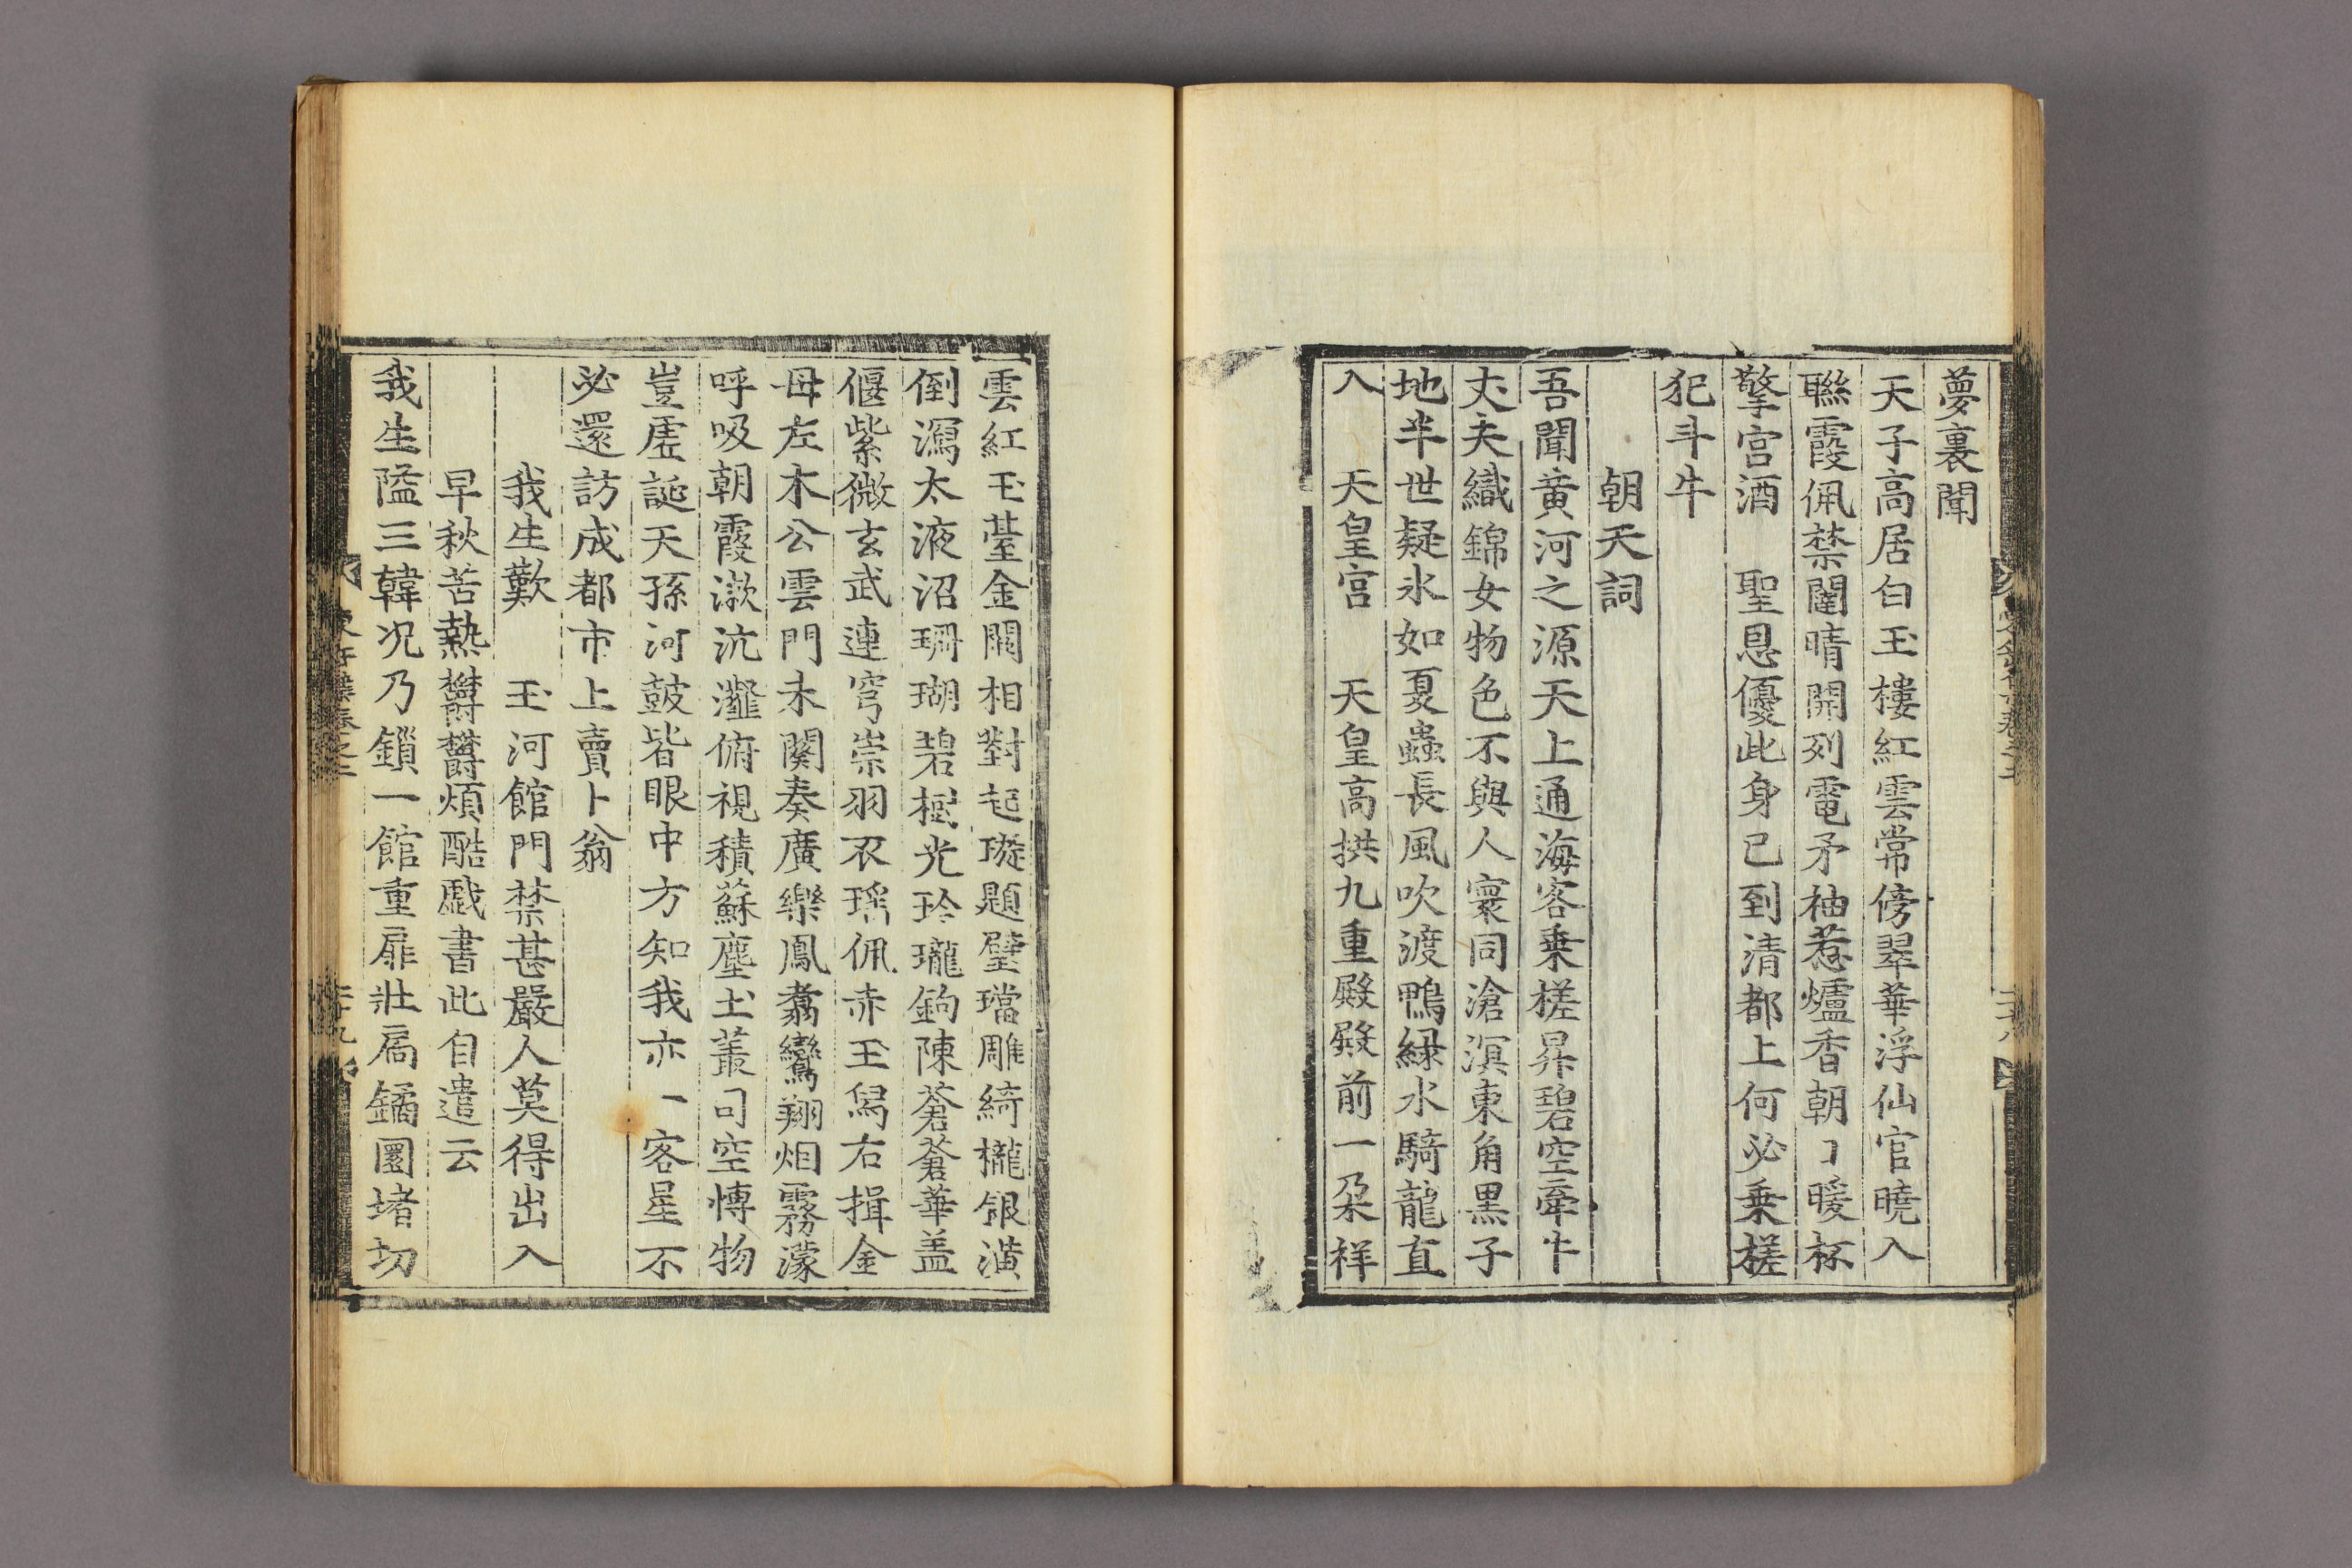 夢裏聞
天子高居白玉樓紅雲常傍翠華浮仙官曉入
聯霞佩禁闥晴開列電矛柚惹爐香朝〻暖杯
擎宮酒　聖恩優此身已到清都上何必乗槎
犯斗牛
朝天詞
吾聞黄河之源天上通海客乗槎昇碧空牽牛
丈夫織錦女物色不與人寰同滄溟東角黒子
地半世疑氷如夏蟲長風吹渡鴨緑水騎龍直
入　天皇宮　天皇高拱九重殿殿前一朶祥
雲紅玉䑓金闕相對起璇題璧璫雕綺櫳銀潢
倒瀉太液沼珊瑚碧樹光玲瓏鉤陳蒼蒼華盖
偃紫微玄武連穹崇羽衣瑶佩赤玉舃右揖金
母左木公雲門未闋奏廣樂鳳翥鸞翔烟霧濛
呼吸朝霞漱沆瀣俯視積蘇塵土叢司空愽物
豈虗誕天孫河皷皆眼中方知我亦一客星不
必還訪成都市上賣卜翁
我生歎　玉河館門禁甚嚴人莫得出入
早秋苦熱欝欝煩酷戯書此自遣云
我生隘三韓况乃鎖一館重扉壯扃鐍圜堵切